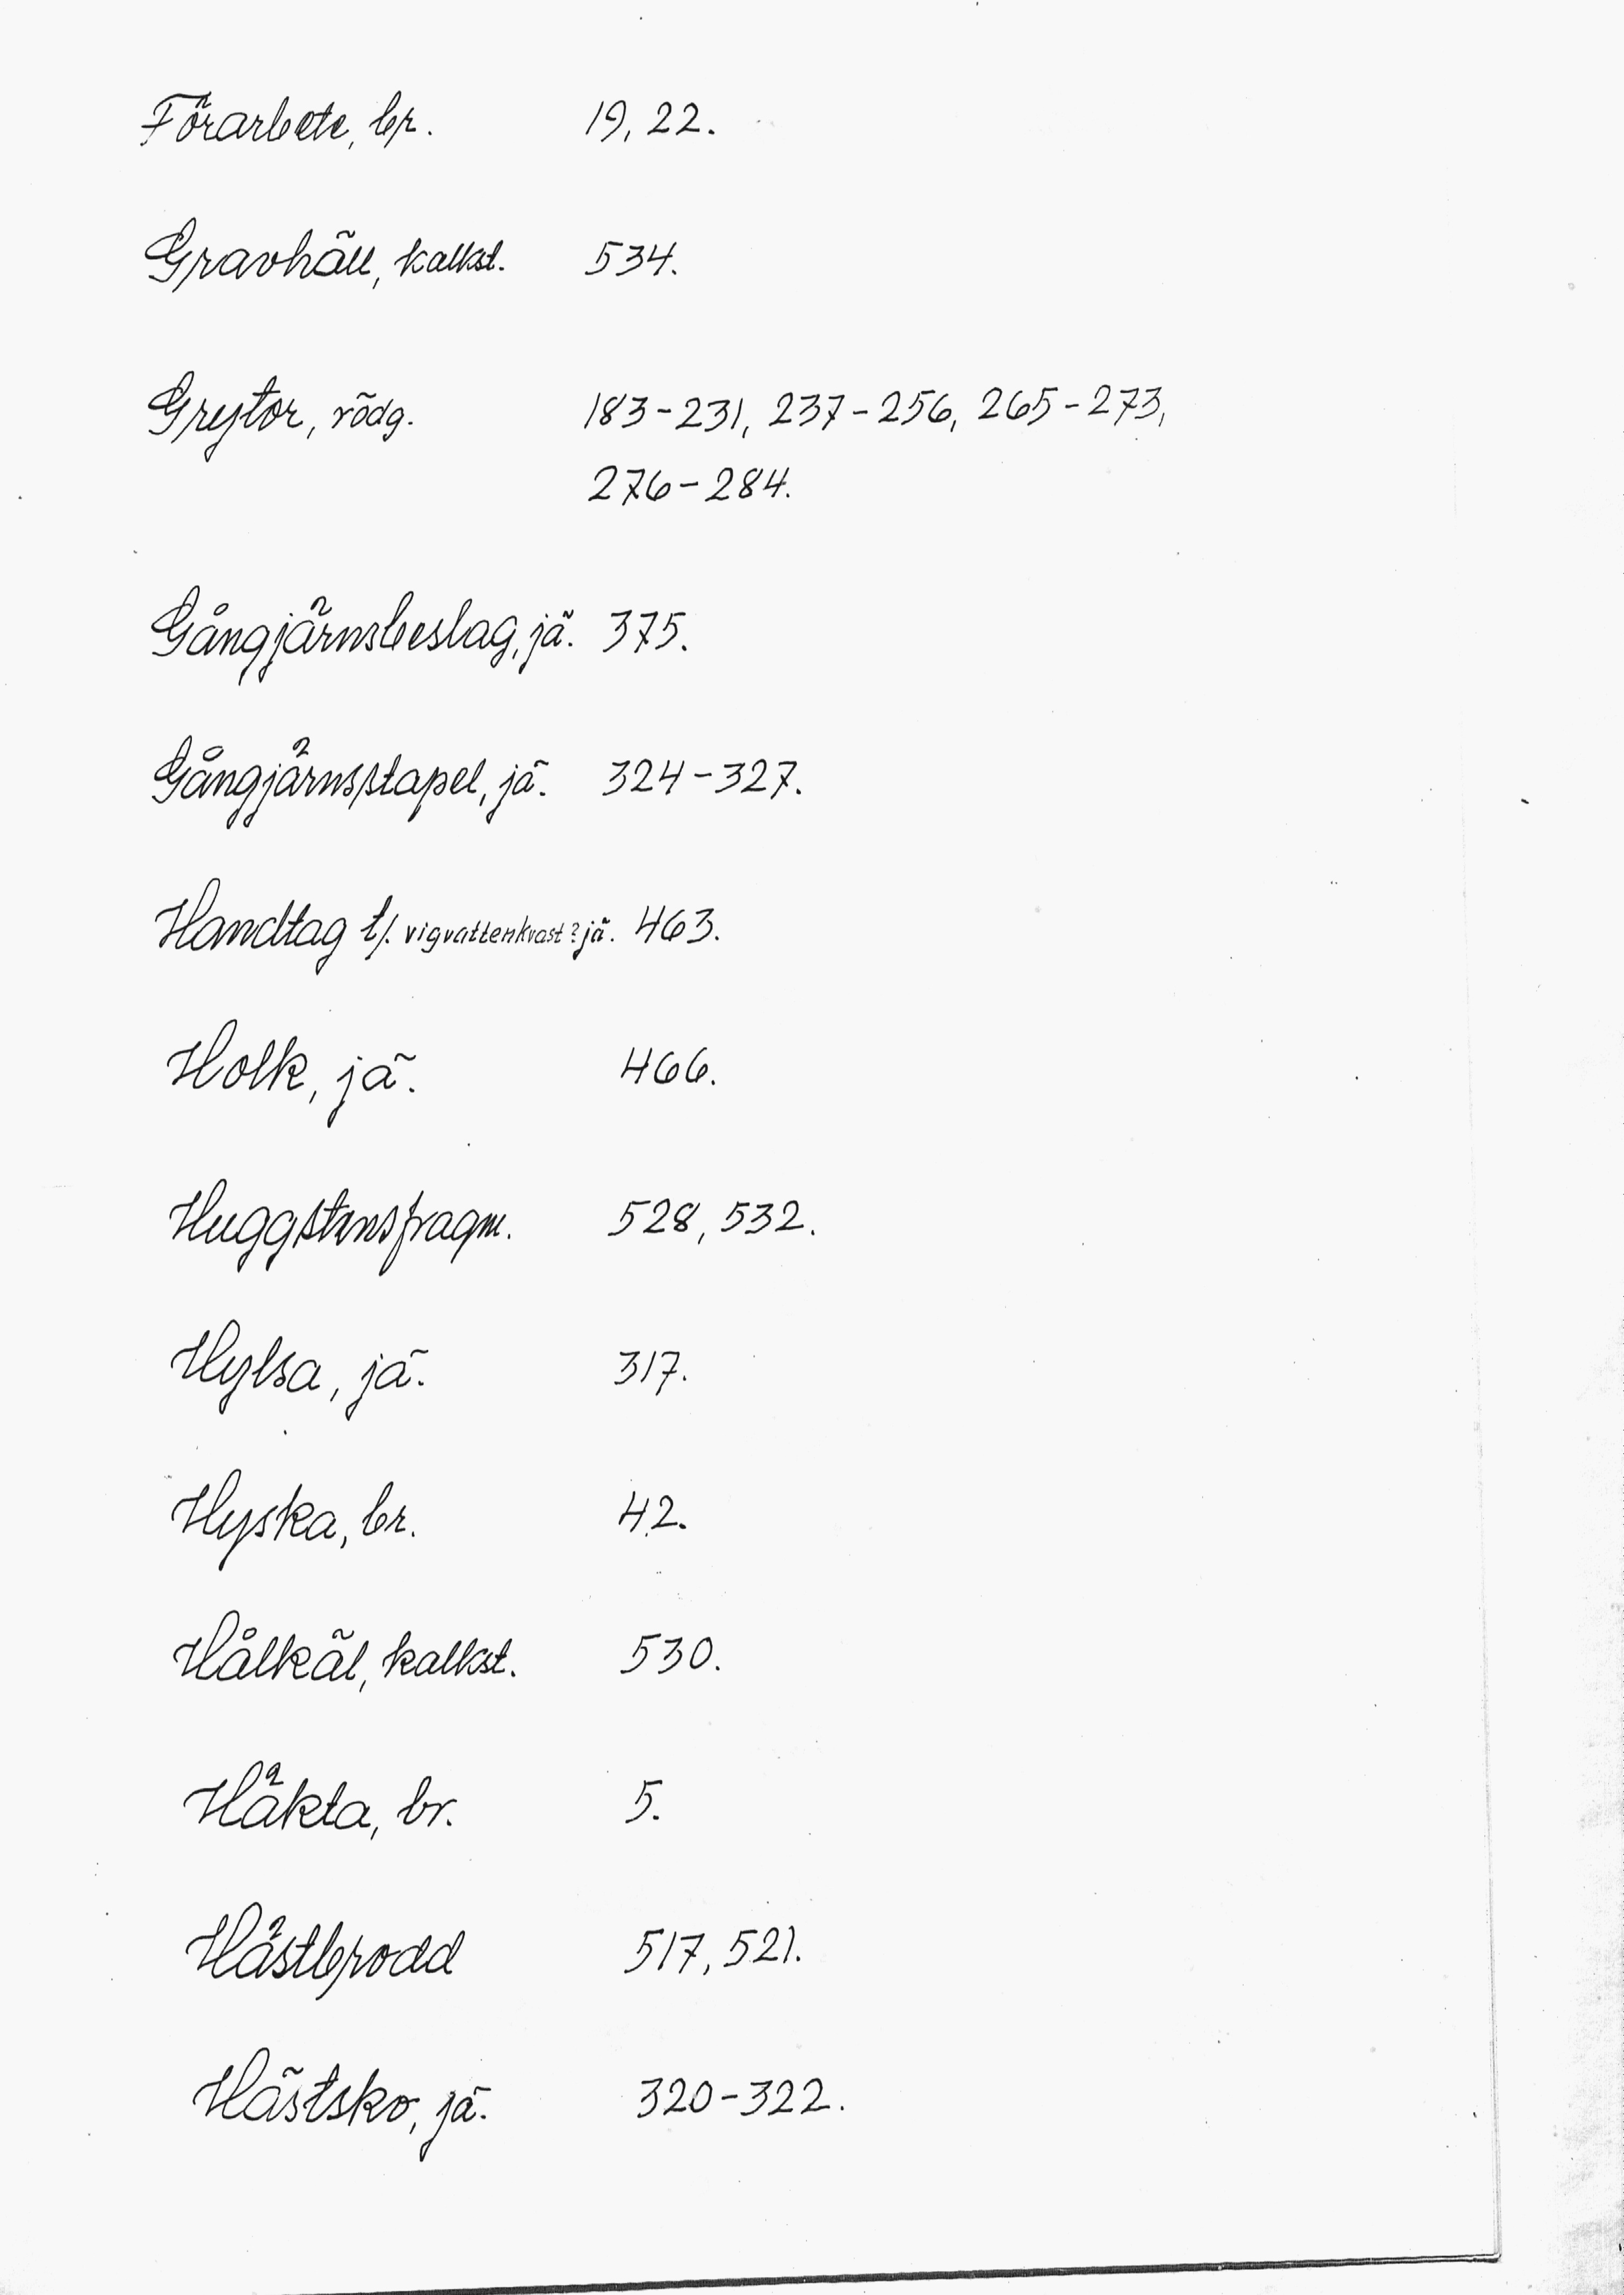 Förarbete, br. 19, 22.
Gravhäll, kalkst. 534.
Grytor, rödg. 183-231, 237-256, 265-273,
276-284.
Gångjärnsbeslag, jä. 375.
Gångjärnsstapel, jä. 324-327.
Handtag t/. vigvattenkvast? jä. 463.
Holk, jä. 466.
Huggstensfragm. 528, 532.
Hylsa, jä. 317.
Hyska, br. 42.
Hålkäl, kalkst. 530.
Häkta, br. 5.
Hästbrodd 517, 521.
Hästsko, jä. 320-322.